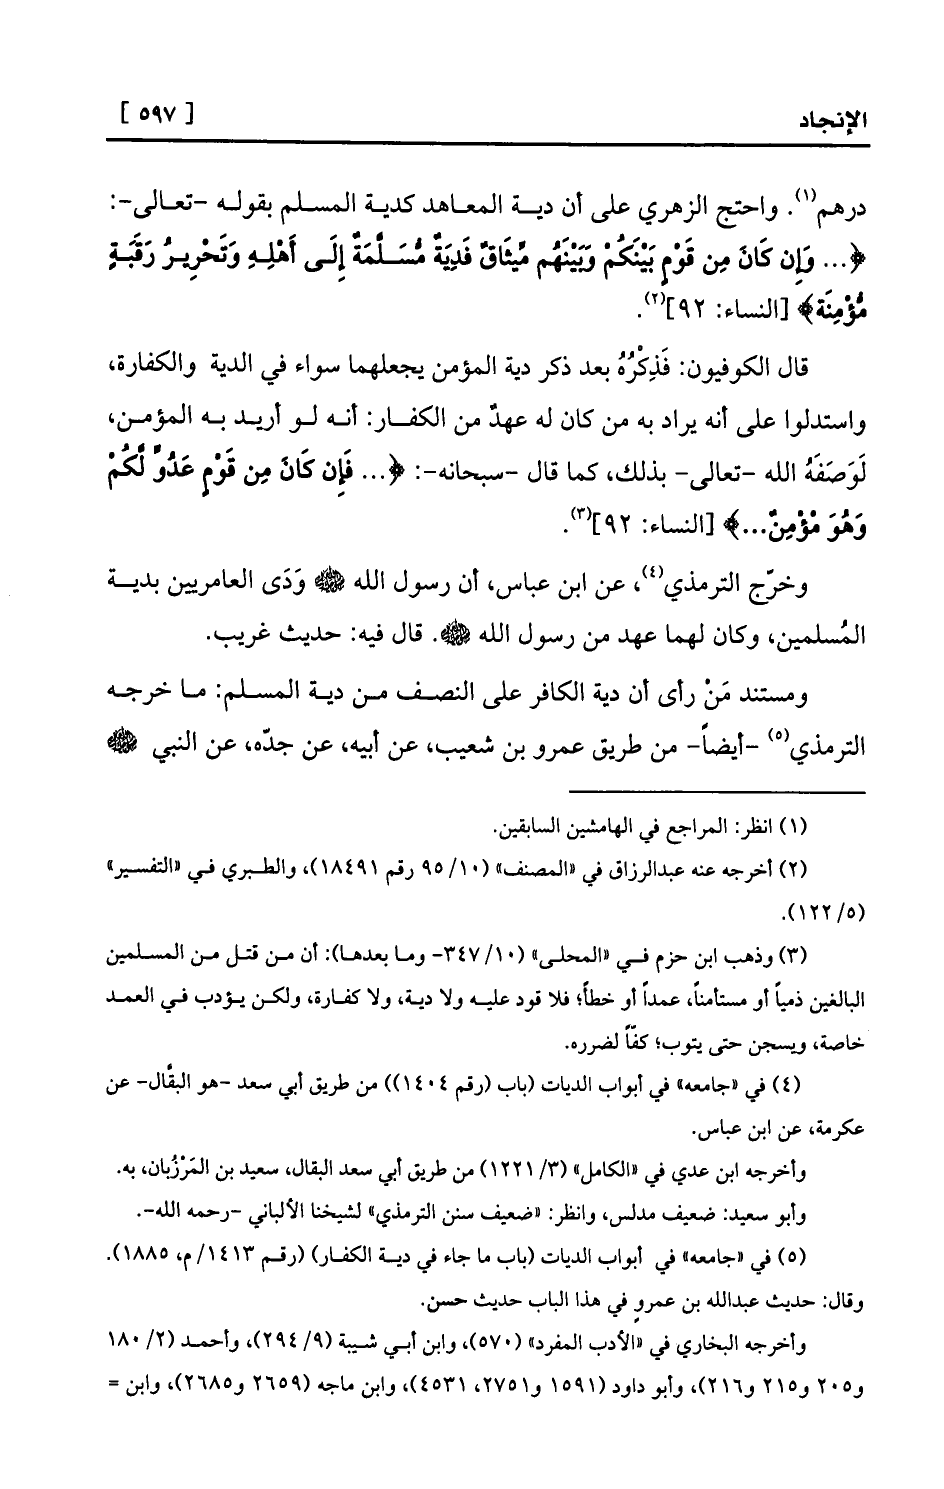 الإنجاد [ ٥٩٧ ]
درهم(١). واحتج الزهري على أن دية المعاهد كدية المسلم بقوله -تعالى-:
﴿... وَإِن كَانَ مِن قَوْمٍ بَيْنَكُمْ وَبَيْنَهُم مِّيثَاقٌ فَدِيَةٌ مُسَلَّمَةٌ إِلَى أَهْلِهِ وَتَحْرِيرُ رَقَبَةٍ
مُّؤْمِنَة﴾ [النساء: ٩٢](٢).
قال الكوفيون: فَذِكْرُهُ بعد ذكر دية المؤمن يجعلهما سواء في الدية والكفارة،
واستدلوا على أنه يراد به من كان له عهدٌ من الكفار: أنه لو أريد به المؤمن،
لَوَصَفَهُ الله -تعالى- بذلك، كما قال -سبحانه-: ﴿... فَإِن كَانَ مِن قَوْمٍ عَدُوٍّ لَّكُمْ
وَهُوَ مْؤْمِنٌ...﴾ [النساء: ٩٢](٣).
وخرّج الترمذي(٤)، عن ابن عباس، أن رسول الله ﷺ وَدَى العامريين بدية
المُسلمين، وكان لهما عهد من رسول الله ﷺ. قال فيه: حديث غريب.
ومستند مَنْ رأى أن دية الكافر على النصف من دية المسلم: ما خرجه
الترمذي(٥) -أيضاً- من طريق عمرو بن شعيب، عن أبيه، عن جدّه، عن النبي ﷺ
(١) انظر: المراجع في الهامشين السابقين.
(٢) أخرجه عنه عبدالرزاق في «المصنف» (١٠/ ٩٥ رقم ١٨٤٩١)، والطبري في «التفسير»
(٥/ ١٢٢).
(٣) وذهب ابن حزم في «المحلى» (١٠/ ٣٤٧- وما بعدها): أن من قتل من المسلمين
البالغين ذمياً أو مستأمناً، عمداً أو خطأً؛ فلا قود عليه ولا دية، ولا كفارة، ولكن يؤدب في العمد
خاصة، ويسجن حتى يتوب؛ كفّاً لضرره.
(٤) في «جامعه» في أبواب الديات (باب (رقم ١٤٠٤)) من طريق أبي سعد -هو البقَّال- عن
عكرمة، عن ابن عباس.
وأخرجه ابن عدي في «الكامل» (٣/ ١٢٢١) من طريق أبي سعد البقال، سعيد بن المَرْزُبان، به.
وأبو سعيد: ضعيف مدلس، وانظر: «ضعيف سنن الترمذي» لشيخنا الألباني -رحمه الله-.
(٥) في «جامعه» في أبواب الديات (باب ما جاء في دية الكفار) (رقم ١٤١٣/ م، ١٨٨٥).
وقال: حديث عبدالله بن عمروٍ في هذا الباب حديث حسن.
وأخرجه البخاري في «الأدب المفرد» (٥٧٠)، وابن أبي شيبة (٩/ ٢٩٤)، وأحمد (٢/ ١٨٠
و٢٠٥ و٢١٥ و٢١٦)، وأبو داود (١٥٩١ و٢٧٥١، ٤٥٣١)، وابن ماجه (٢٦٥٩ و٢٦٨٥)، وابن =